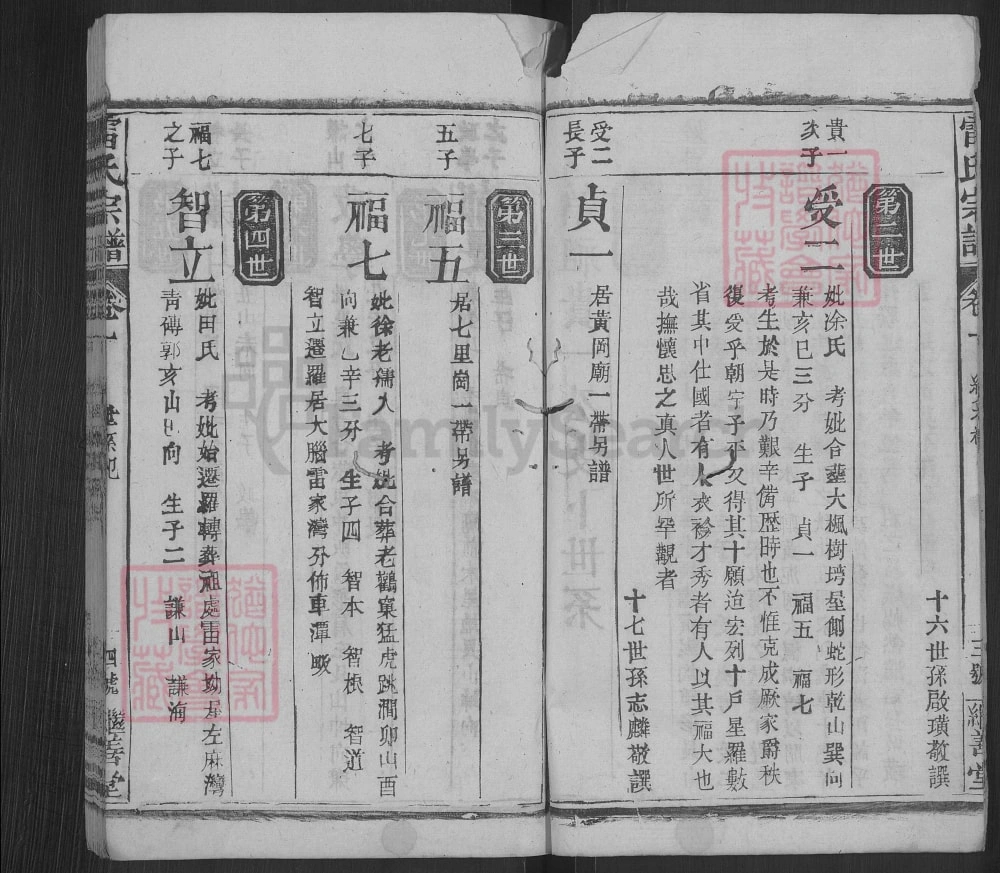 雷氏宗譜
卷一
三號
繼善堂
十六世孫啟璜敬譔
第二世
貴一
次子
受二
妣凃氏 考妣合塟大楓樹塆屋側蛇形乾山巽向
兼亥巳三分 生子 貞一 福五 福七
考生於是時乃艱辛備歴時也不惟克成厥家爵秩
復受乎朝宇子不又得其十願迨宏列十戶星羅數
省其中仕國者有人衣衿才秀者有人以其福大也
哉撫懷思之真人世所罕覯者
十七世孫志麟敬譔
受二
長子
貞一
居黃岡廟一帶另譜
第三世
五子
福五
居七里崗一帶另譜
七子
福七
妣徐老孺人 考妣合葬老鸛窠猛虎跳澗卯山酉
向兼乙辛三分 生子四 智本 智根 智道
智立遷羅居大腦雷家灣分佈車潭畈
第四世
福七
之子
智立
妣田氏 考妣始遷羅轉葬祖處雷家坳屋左麻灣
青磚郭亥山巳向 生子二 謙山 謙海
雷氏宗譜
卷一
四號
繼善堂
FamilySearch